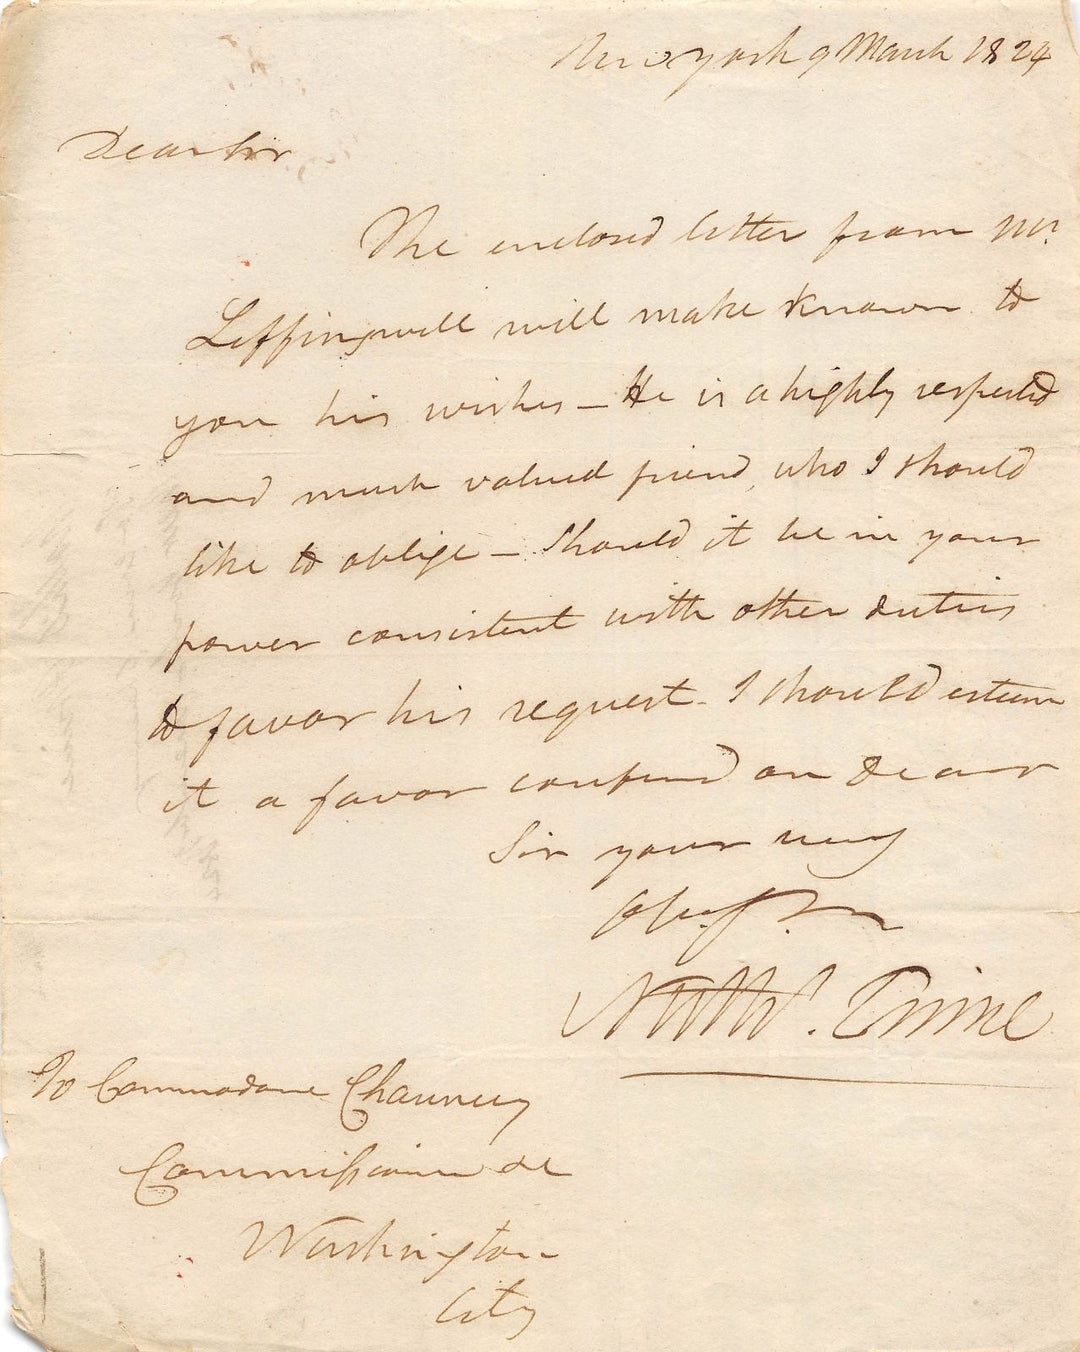 New York 9 March 1824
Dear Sir
The enclosed letter from Mr.
Leffingwell will make known to
you his wishes – He is a highly respected
and much valued friend, who I should
like to oblige – Should it be in your
power consistent with other duties
to favor his request. I should esteem
it a favor confered on Dear
Sir your very
Obt. St.
Nathl. Prime
To Commodore Chauncey
Commissioner &c
Washington
City